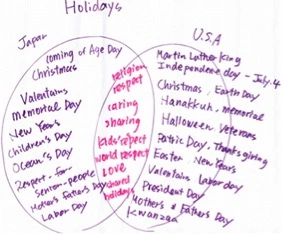 Holidays
Japan
Coming of Age Day
Christmas
Valentains
Memorial Day
New Years
Children's Day
Ocean's Day
Respect-for-
Senior-people
Mothers Fathers Day
Labor Day
religion
respect
caring
sharing
kids respect
world respect
Love
shared
holidays
U.S.A
Martin Luther King
Independence day - July.4
Christmas, Earth Day
Hanakkuh, memorial
Halloween, Veterans
Patric Day, Thanksgiving
Easter, New Years
Valentains Labor day
President Day
Mothers & Fathers Day
Kwanzaa